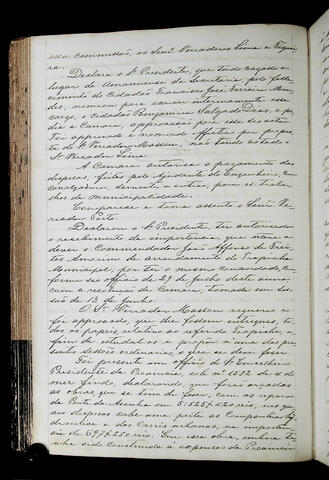 essa commissão, os Senrs. Vereadores Lima e Siquei-
ra.
Declara o Sr. Presidente, que tendo vagado o
lugar de Amanuense da Secretaria, pelo falle-
cimento do Cidadão Francisco José Ferreira Men-
des, nomeou para exercer interinamente esse
cargo, o Cidadão Benjamim Salgado Dias, e pe-
dia a Camara, approvação por esse seo acto.
Foi approvado e nomeado effectivo por propos-
ta do Sr. Vereador Masson, não tendo votado o
Sr. Vereador Lima.
A Camara autorisa o pagamento das
despesas, feitas pelo Ajudante do Engenheiro, em
cavalgaduras, sementes e outros, para os traba-
lhos da municipalidade.
Comparece e toma assento o Senr. Ve-
reador Porto.
Declarou o Sr. Presidente, ter autorisado
o recebimento da importancia que estava a
dever o Commendador João Affonso de Frei-
tas Amorim do arrendamento do Trapiche
Municipal, por ter o mesmo concordado, con-
forme seo officio de 29 de Julho deste anno
com a resolução da Camara, tomada em Ses-
são de 13 de Junho.
O Sr. Vereador Masson requereo e
foi approvado, que lhe fossem entregues, to-
dos os papeis, relativo ao referido Trapiche, a
fim de estudal-os e propôr n'uma das pre-
sentes sessões ordinarias, o que se deve fazer.
Foi presente um officio do Sr. Conselheiro
Presidente da Provincia, sob nº 1582 de 4 do
mez findo, declarando que foram orçadas
as obras, que se tem de fazer, com os reparos
da Ponte da Azenha em 5:525$420 reis, em
cujas despesas cabe uma parte as Companhias Hy-
draulica e dos Carris urbanos, na importan-
cia de 697$280 reis. Que essa obra, embora te-
nha sido construida a expensas da Provincia